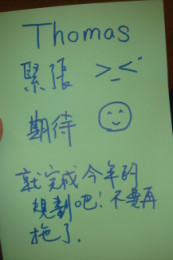 Thomas
緊張 >_<
期待 ☺
就完成今年的
規劃吧！不要再
拖了.